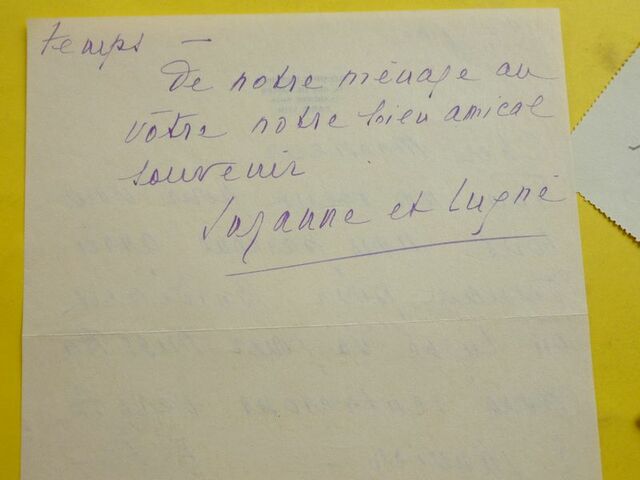 temps —
De notre ménage au
vôtre notre bien amical
souvenir
Suzanne et Lugné